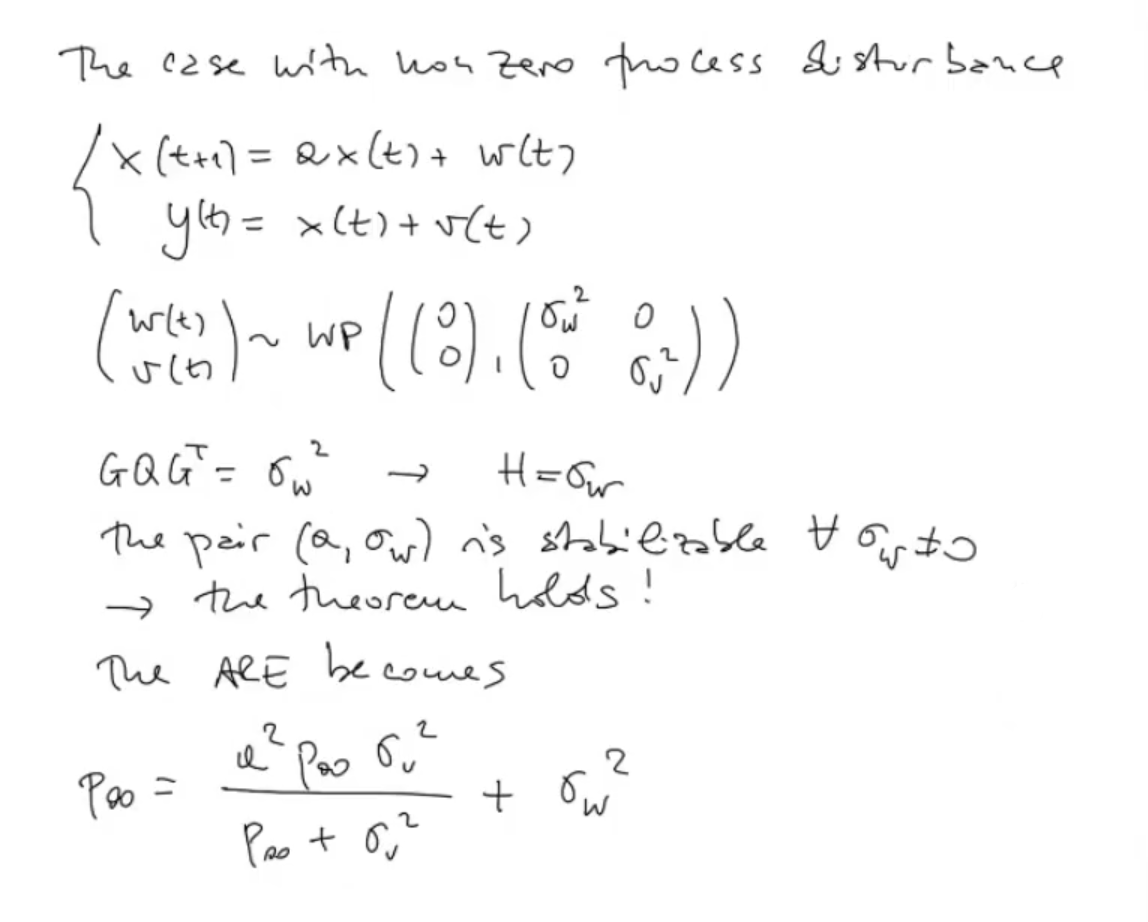 The case with non zero process disturbance
{ x(t+1) = a x(t) + w(t)
y(t) = x(t) + v(t)
( w(t) v(t) ) ~ WP ( ( 0 0 ), ( σw² 0 0 σv² ) )
GQGᵀ = σw² → H = σw
the pair (a, σw) is stabilizable ∀ σw ≠ 0
→ the theorem holds!
The ARE becomes
p∞ = a² p∞ σv² / (p∞ + σv²) + σw²